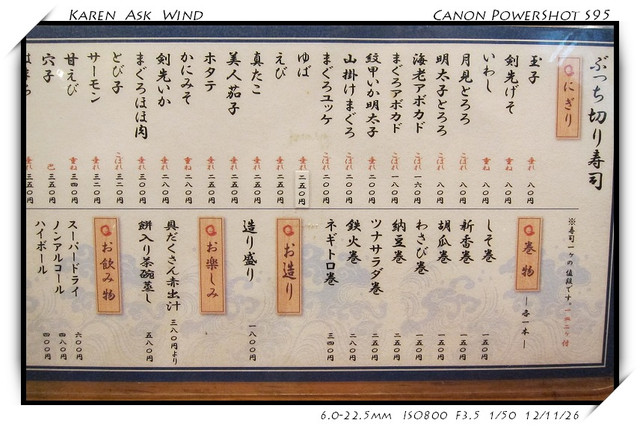 Karen Ask Wind
Canon PowerShot S95
ぶっち切り寿司
にぎり
玉子 垂れ 八〇円
剣先げそ 重ね 八〇円
いわし 重ね 八〇円
月見とろろ 垂れ 八〇円
明太子とろろ こぼれ 一八〇円
海老アボカド こぼれ 一六〇円
まぐろアボカド こぼれ 一八〇円
紋甲いか明太子 こぼれ 二〇〇円
山掛けまぐろ こぼれ 二〇〇円
まぐろユッケ こぼれ 二〇〇円
ゆば 垂れ 二五〇円
えび 垂れ 二五〇円
真たこ 垂れ 二五〇円
美人茄子 垂れ 二五〇円
ホタテ 垂れ 二五〇円
かにみそ こぼれ 二八〇円
剣先いか 重ね 二八〇円
まぐろほほ肉 垂れ 三〇〇円
とび子 こぼれ 三二〇円
サーモン 垂れ 三二〇円
甘えび 重ね 三四〇円
穴子 三五〇円
垂れ 三五〇円
※寿司一ケの値段です。
巻物
―各一本―
しそ巻 一五〇円
新香巻 一五〇円
胡瓜巻 一五〇円
わさび巻 一五〇円
納豆巻 二五〇円
ツナサラダ巻 二五〇円
鉄火巻 二八〇円
ネギトロ巻 三四〇円
お造り
造り盛り 一八〇〇円
お楽しみ
具だくさん赤出汁 三八〇円より
餅入り茶碗蒸し 五八〇円
お飲み物
スーパードライ 六〇〇円
ノンアルコール 四八〇円
ハイボール 四八〇円
6.0-22.5mm ISO800 F3.5 1/50 12/11/26